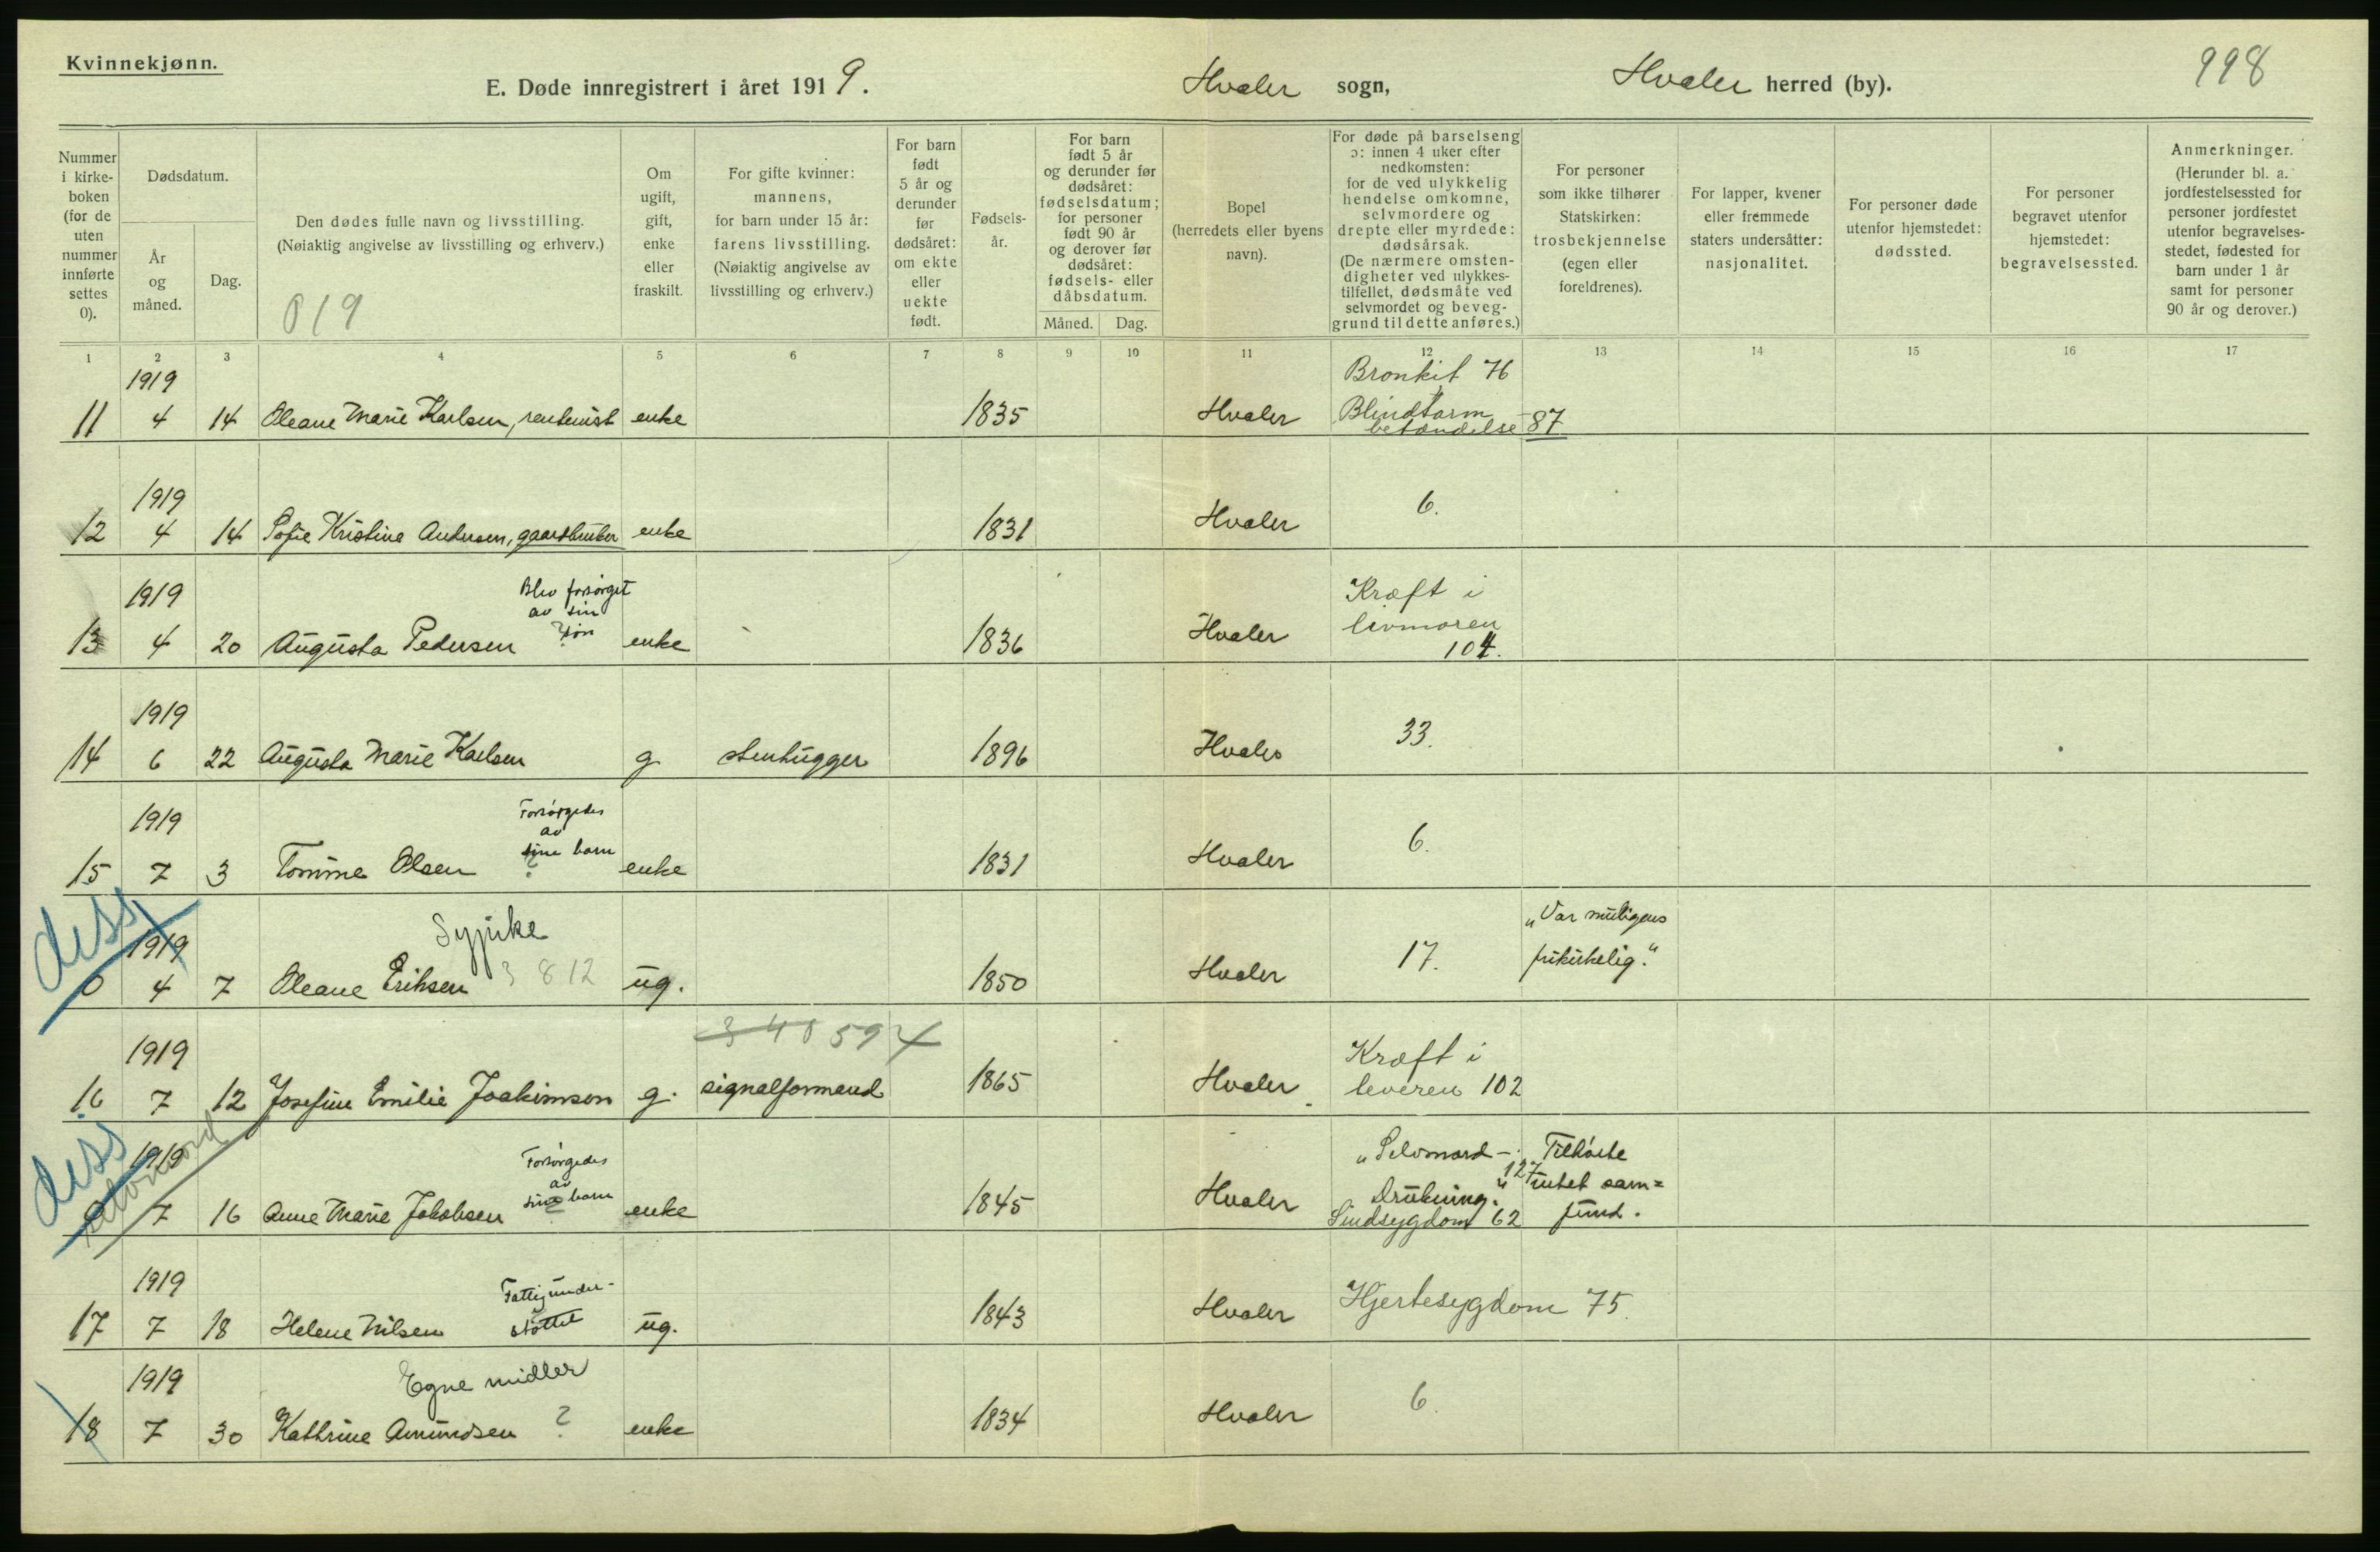 Kvinnekjønn.
E. Døde innregistrert i året 1919.
Hvaler sogn,
Hvaler herred (by).
998
Nummer i kirke-boken (for de uten nummer innførte settes 0).
Dødsdatum.
År og måned.
Dag.
Den dødes fulle navn og livsstilling.
(Nøiaktig angivelse av livsstilling og erhverv.)
019
Om ugift, gift, enke eller fraskilt.
For gifte kvinner: mannens, for barn under 15 år: farens livsstilling. (Nøiaktig angivelse av livsstilling og erhverv.)
For barn født 5 år og derunder før dødsåret: om ekte eller uekte født.
Fødsels-år.
For barn født 5 år og derunder før dødsåret: fødselsdatum; for personer født 90 år og derover før dødsåret: fødsels- eller dåbsdatum.
Måned. Dag.
Bopel (herredets eller byens navn).
For døde på barselseng ɔ: innen 4 uker efter nedkomsten: for de ved ulykkelig hendelse omkomne, selvmordere og drepte eller myrdede: dødsårsak. (De nærmere omsten-digheter ved ulykkes-tilfellet, dødsmåte ved selvmordet og beveg-grund til dette anføres.)
For personer som ikke tilhører Statskirken: trosbekjennelse (egen eller foreldrenes).
For lapper, kvener eller fremmede staters undersåtter: nasjonalitet.
For personer døde utenfor hjemstedet: dødssted.
For personer begravet utenfor hjemstedet: begravelsessted.
Anmerkninger. (Herunder bl. a. jordfestelsessted for personer jordfestet utenfor begravelses-stedet, fødested for barn under 1 år samt for personer 90 år og derover.)
1 2 3 4 5 6 7 8 9 10 11 12 13 14 15 16 17
1919 Bronkit 76
11 4 14 Oleane Marie Karlsen, rentenist enke 1835 Hvaler Blindtarm
betændelse - 87
1919
12 4 14 Sofie Kristine Andersen, gaardbruker enke 1831 Hvaler 6.
1919 Blev forsørget av sin søn Kræft i
13 4 20 Augusta Pedersen ? enke 1836 Hvaler livmoren
104.
1919
14 6 22 Augusta Marie Karlsen g stenhugger 1896 Hvaler 33.
1919 Forsørgedes av sine barn
15 7 3 Tomine Olsen ? enke 1831 Hvaler 6.
diss
1919 Sypike "Var muligens
0 4 7 Oleane Eriksen 3812 ug. 1850 Hvaler 17. frikirkelig."
1919 Kræft i
16 7 12 Josefine Emilie Joakimsen g. signalformand 1865 Hvaler leveren 102
diss
selvmord
1919 Forsørgedes av sine barn "Selvmord - Tilhørte
0 7 16 Anne Marie Jakobsen enke 1845 Hvaler Drukning." 127 intet sam=
Sindsygdom 62 fund.
1919 Fattigunder-
støttet
17 7 18 Helene Nilsen ug. 1843 Hvaler Hjertesygdom 75.
1919 Egne midler
18 7 30 Kathrine Amundsen ? enke 1834 Hvaler 6.